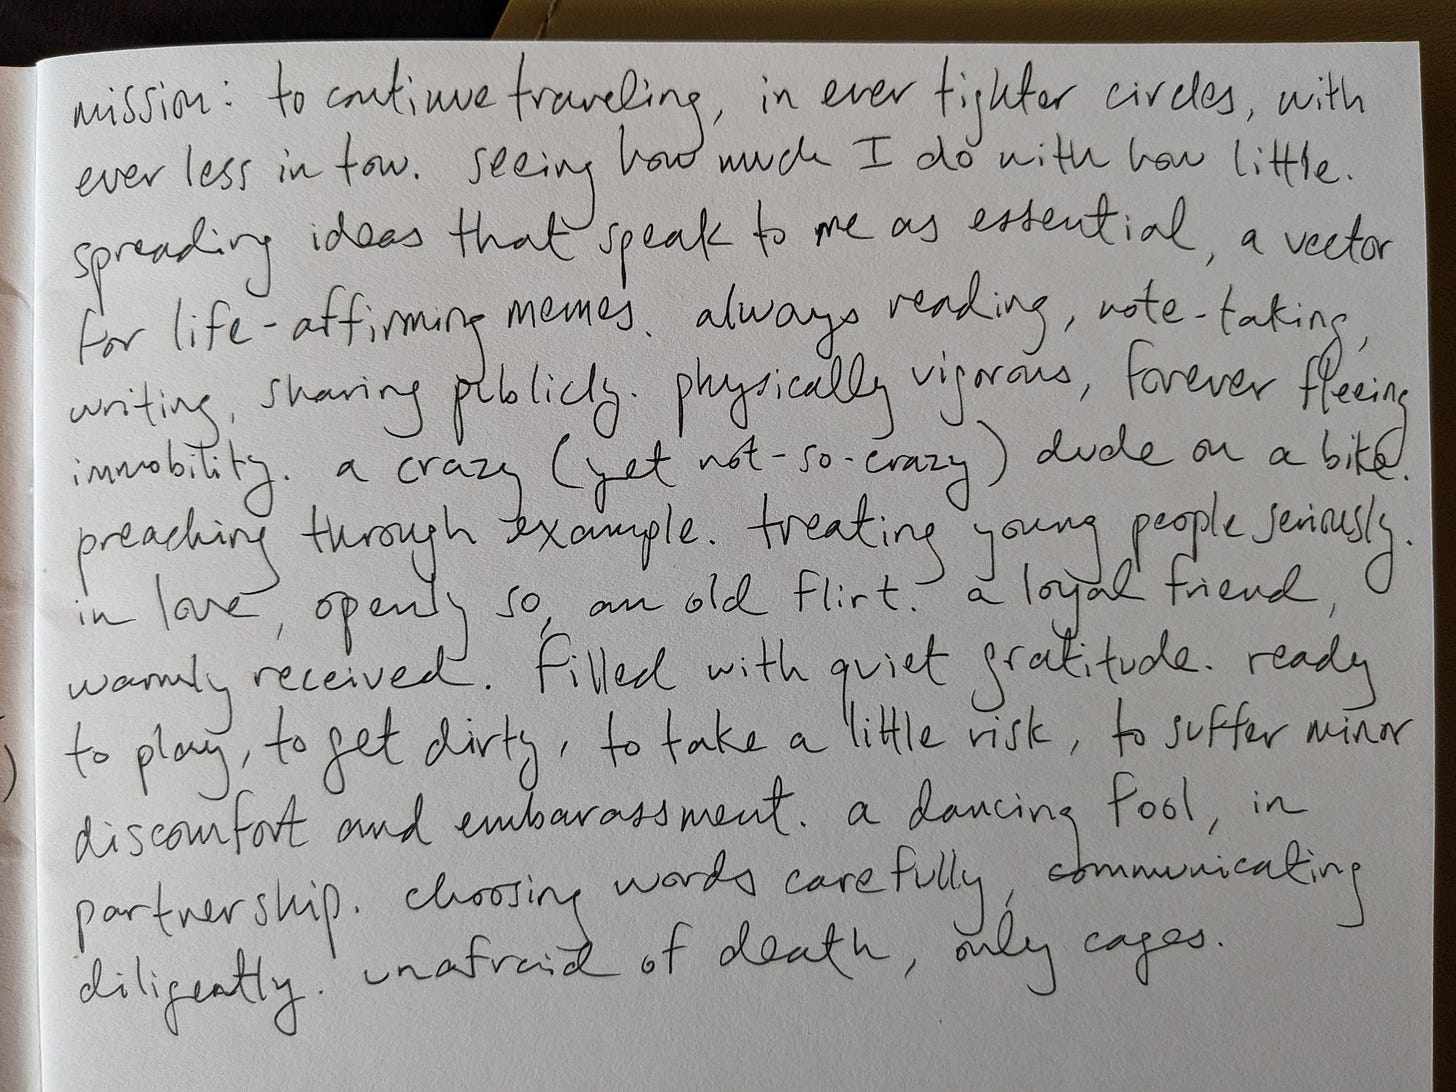 mission: to continue traveling, in ever tighter circles, with
ever less in tow. seeing how much I do with how little.
spreading ideas that speak to me as essential, a vector
for life-affirming memes. always reading, note-taking,
writing, sharing publicly. physically vigorous, forever fleeing
immobility. a crazy (yet not-so-crazy) dude on a bike.
preaching through example. treating young people seriously.
in love, openly so, an old flirt. a loyal friend,
warmly received. filled with quiet gratitude. ready
to play, to get dirty, to take a little risk, to suffer minor
discomfort and embarassment. a dancing fool, in
partnership. choosing words carefully, communicating
diligently. unafraid of death, only cages.
)